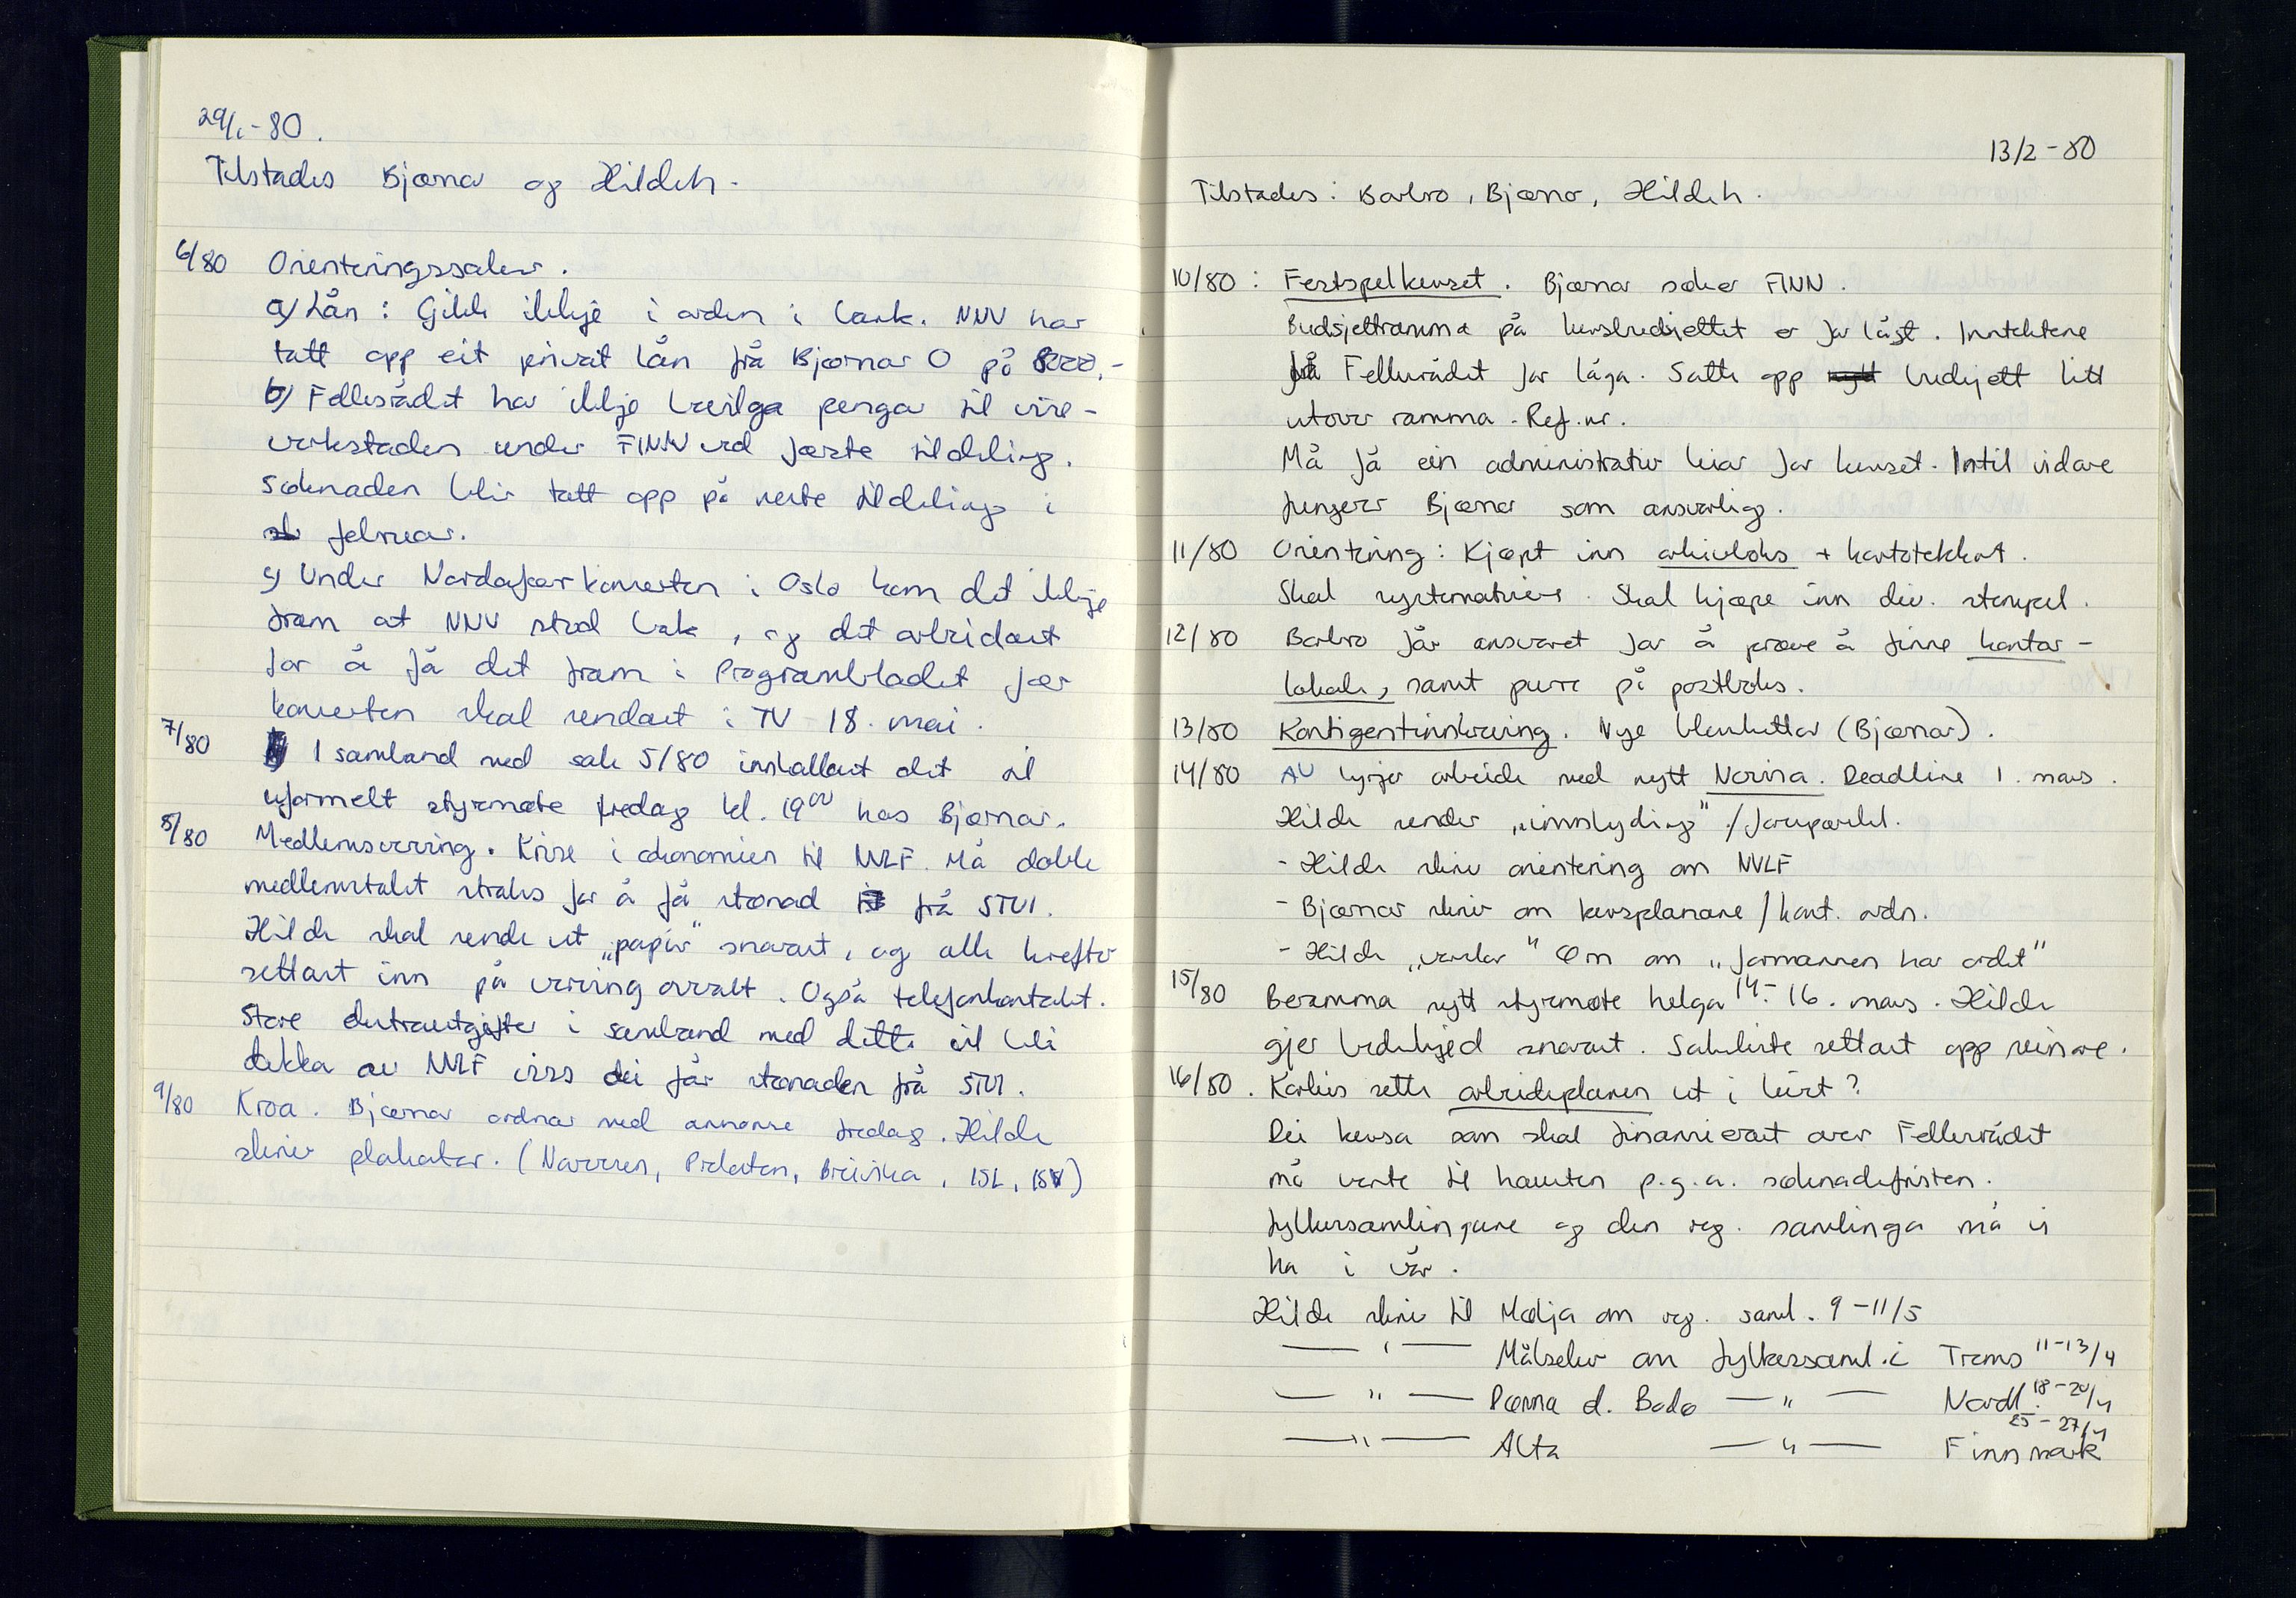 29/1-80.
Tilstades Bjørnar og Hildeh.
6/80 Orienteringssaker.
a) Lån: Gikk ikkje i orden i bank. NNV har
tatt opp eit privat lån frå Bjørnar O på 8000,-
b) Fellesrådet har ikkje bevilga pengar til vise-
verkstaden under FINN ved første tildeling.
Søknaden blir tatt opp på neste tildeling i
februar.
c) Under Nordaførkonserten i Oslo kom det ikkje
fram at NNV stod bak, og det arbeidast
for å få det fram i Programbladet før
konserten skal sendast i TV 18. mai.
7/80 I samband med sak 5/80 innkallast det til
uformelt styremøte fredag kl. 19⁰⁰ hos Bjørnar.
8/80 Medlemsverving. Krise i økonomien til NVLF. Må doble
medlemstalet straks for å få stønad frå STUI.
Hilde skal sende ut „papir" snarast, og alle krefter
settast inn på verving overalt. Også telefonkontakt.
Store ekstrautgifter i samband med dette vil bli
dekka av NVLF viss dei får stønaden frå STUI.
9/80 Kroa. Bjørnar ordnar med annonse fredag. Hilde
skriv plakatar. (Navvren, Prelaten, Breivika, ISL, ISV)
13/2-80
Tilstades: Barbro, Bjørnar, Hildeh.
10/80: Festspelkurset. Bjørnar søker FINN.
Budsjettramma på kursbudsjettet er for lågt. Inntektene
frå Fellesrådet for låga. Sette opp budsjett litt
utover ramma. Ref. nr.
Må få ein administrativ leiar for kurset. Intil vidare
fungerer Bjørnar som ansvarlig.
11/80 Orientering: Kjøpt inn arkivboks + kartotekkort.
Skal systematisere. Skal kjøpe inn div. stempel.
12/80 Barbro får ansvaret for å prøve å finne kontor-
lokale, samt purre på postboks.
13/80 Kontigentinnkreving. Nye blankettar (Bjørnar).
14/80 AU byrjer arbeide med nytt Norvisa. Deadline 1. mars.
Hilde sender „innbyding" / forespørsel.
- Hilde skriv orientering om NVLF
- Bjørnar skriv om kursplanane / kont. ordn.
- Hilde „varslar" Øm om „formannen har ordet"
15/80 Beramma nytt styremøte helga 14.- 16. mars. Hilde
gjer beskjed snarast. Sakliste settast opp seinare.
16/80. Korleis sette arbeidsplanen ut i livet?
Dei kursa som skal finansierast over Fellesrådet
må vente til hausten p.g.a. søknadsfristen.
Fylkessamlingane og den reg. samlinga må vi
ha i vår.
Hilde skriv til Mødja om reg. saml. 9-11/5
— " — Målselv om fylkessaml. i Troms 11-13/4
— " — Pønna d. Bodø — " — Nordl. 18-20/4
— " — Alta — " — Finnmark 25-27/4